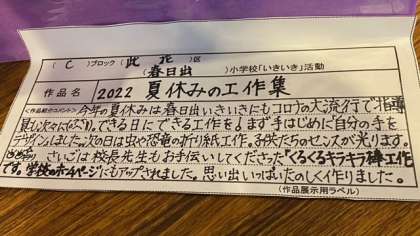 ( C )ブロック( 此花 )区
( 春日出 )小学校「いきいき」活動
作品名 2022 夏休みの工作集
<作品紹介コメント>今年の夏休みは春日出いきいきにもコロナの大流行で指導
員も次々に(××)。できる日にできる工作を!まず手はじめに「自分の手を
デザイン」しました。次の日は虫や恐竜の折り紙工作。子供たちのセンスが光ります。
さいごは校長先生もお手伝いしてくださった"くるくるキラキラ棒工作"
です。学校のホームページにもアップされました。思い出いっぱいたのしく作りました。
(作品展示用ラベル)